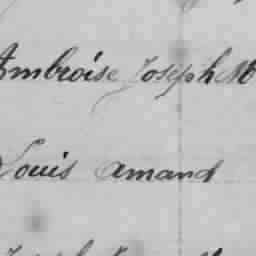 Ambroise Joseph M
Louis Amand